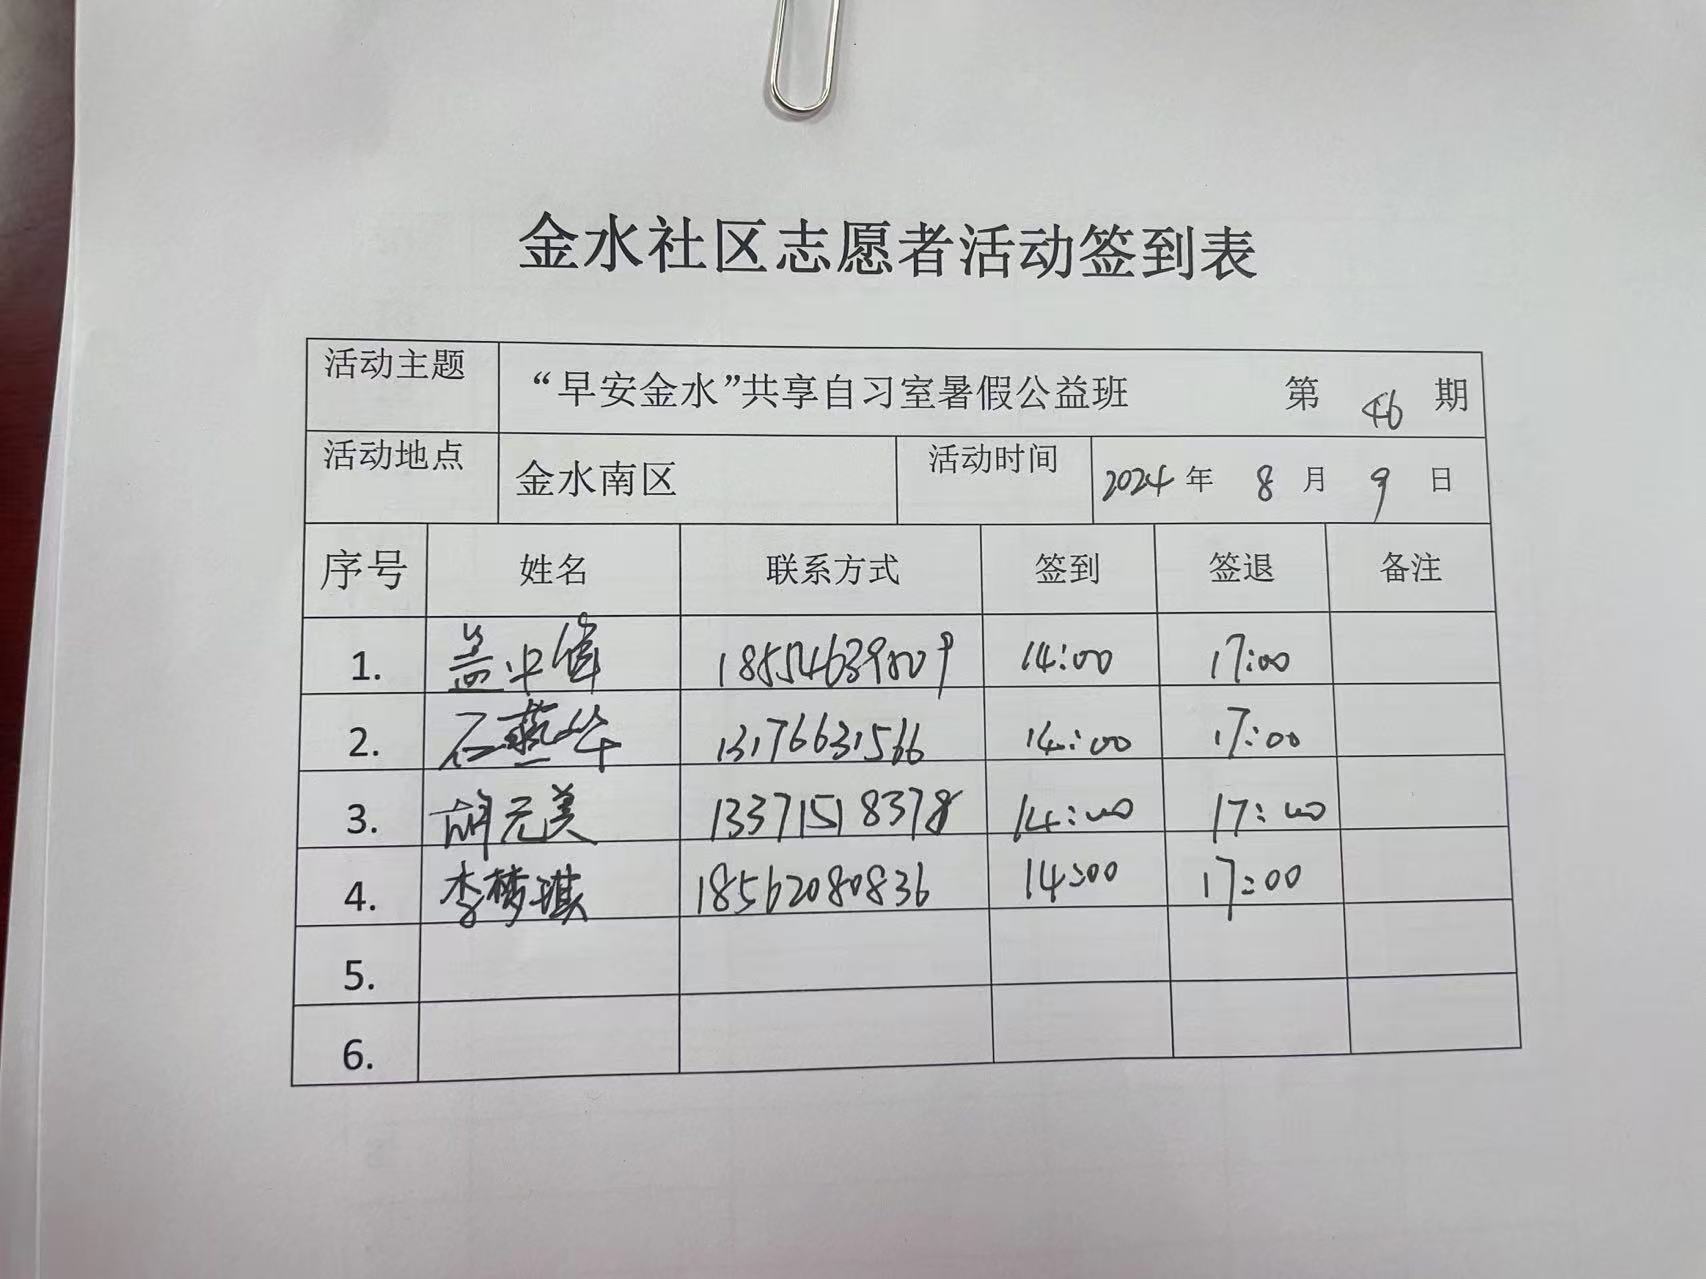 金水社区志愿者活动签到表
活动主题 “早安金水”共享自习室暑假公益班 第 46 期
活动地点 金水南区 活动时间 2024 年 8 月 9 日
序号 姓名 联系方式 签到 签退 备注
1. 盖中伟 18554639809 14:00 17:00
2. 石燕华 13176631566 14:00 17:00
3. 胡元美 13371518378 14:00 17:00
4. 李梦琪 18562080836 14:00 17:00
5.
6.